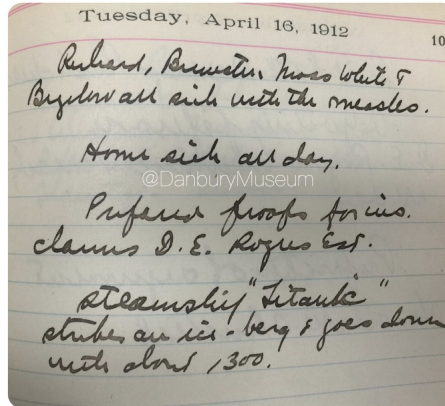 Tuesday, April 16, 1912
10
Richard, Brewster, Moss White &
Bigelow all sick with the measles.
Home sick all day.
@DanburyMuseum
Prepared proofs for ins.
claims D. E. Rogers Est.
Steamship "Titanic"
strikes an ice-berg & goes down
with about 1300.